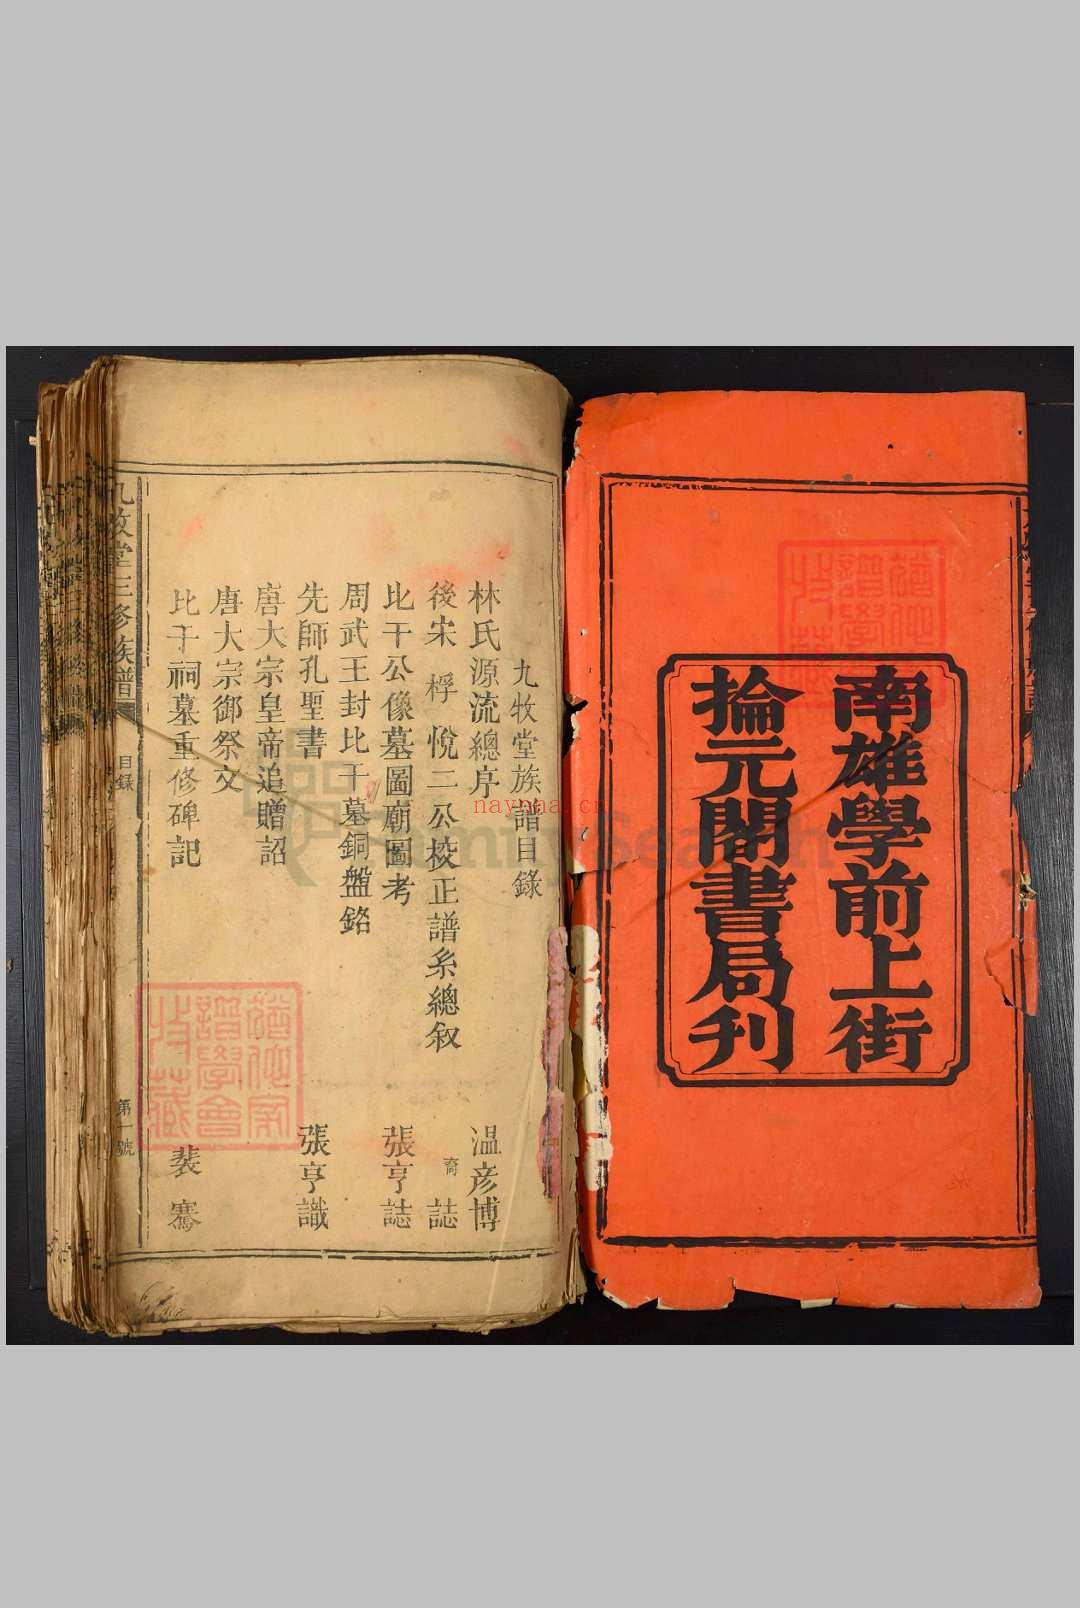 南雄學前上街
掄元閣書局刊
九牧堂族譜目錄
林氏源流總序 温彦博
後宋 桴 悅二公校正譜系總叙 裔 誌
比干公像墓圖廟圖考 張亨誌
周武王封比干墓銅盤銘
先師孔聖書 張亨識
唐大宗皇帝追贈詔
唐大宗御祭文
比干祠墓重修碑記 裴騫
九牧堂三修族譜 目錄 第一號
FamilySearch
nayona.cn